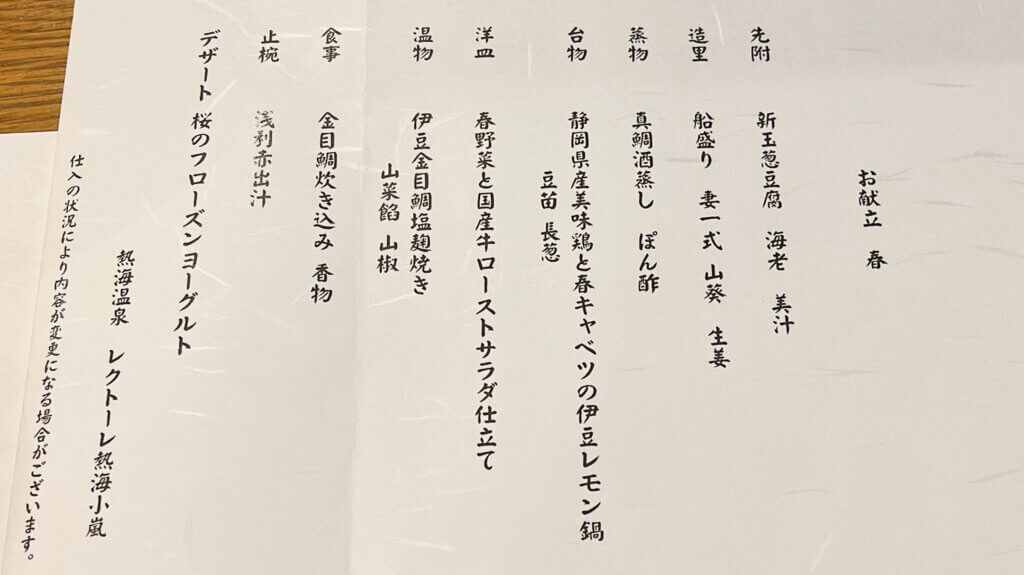 お献立　春
先附　新玉葱豆腐　海老　美汁
造里　船盛り　妻一式　山葵　生姜
蒸物　真鯛酒蒸し　ぽん酢
台物　静岡県産美味鶏と春キャベツの伊豆レモン鍋
豆苗　長葱
洋皿　春野菜と国産牛ローストサラダ仕立て
温物　伊豆金目鯛塩麹焼き
山菜餡　山椒
食事　金目鯛炊き込み　香物
止椀　浅利赤出汁
デザート　桜のフローズンヨーグルト
熱海温泉　レクトーレ熱海小嵐
仕入の状況により内容が変更になる場合がございます。